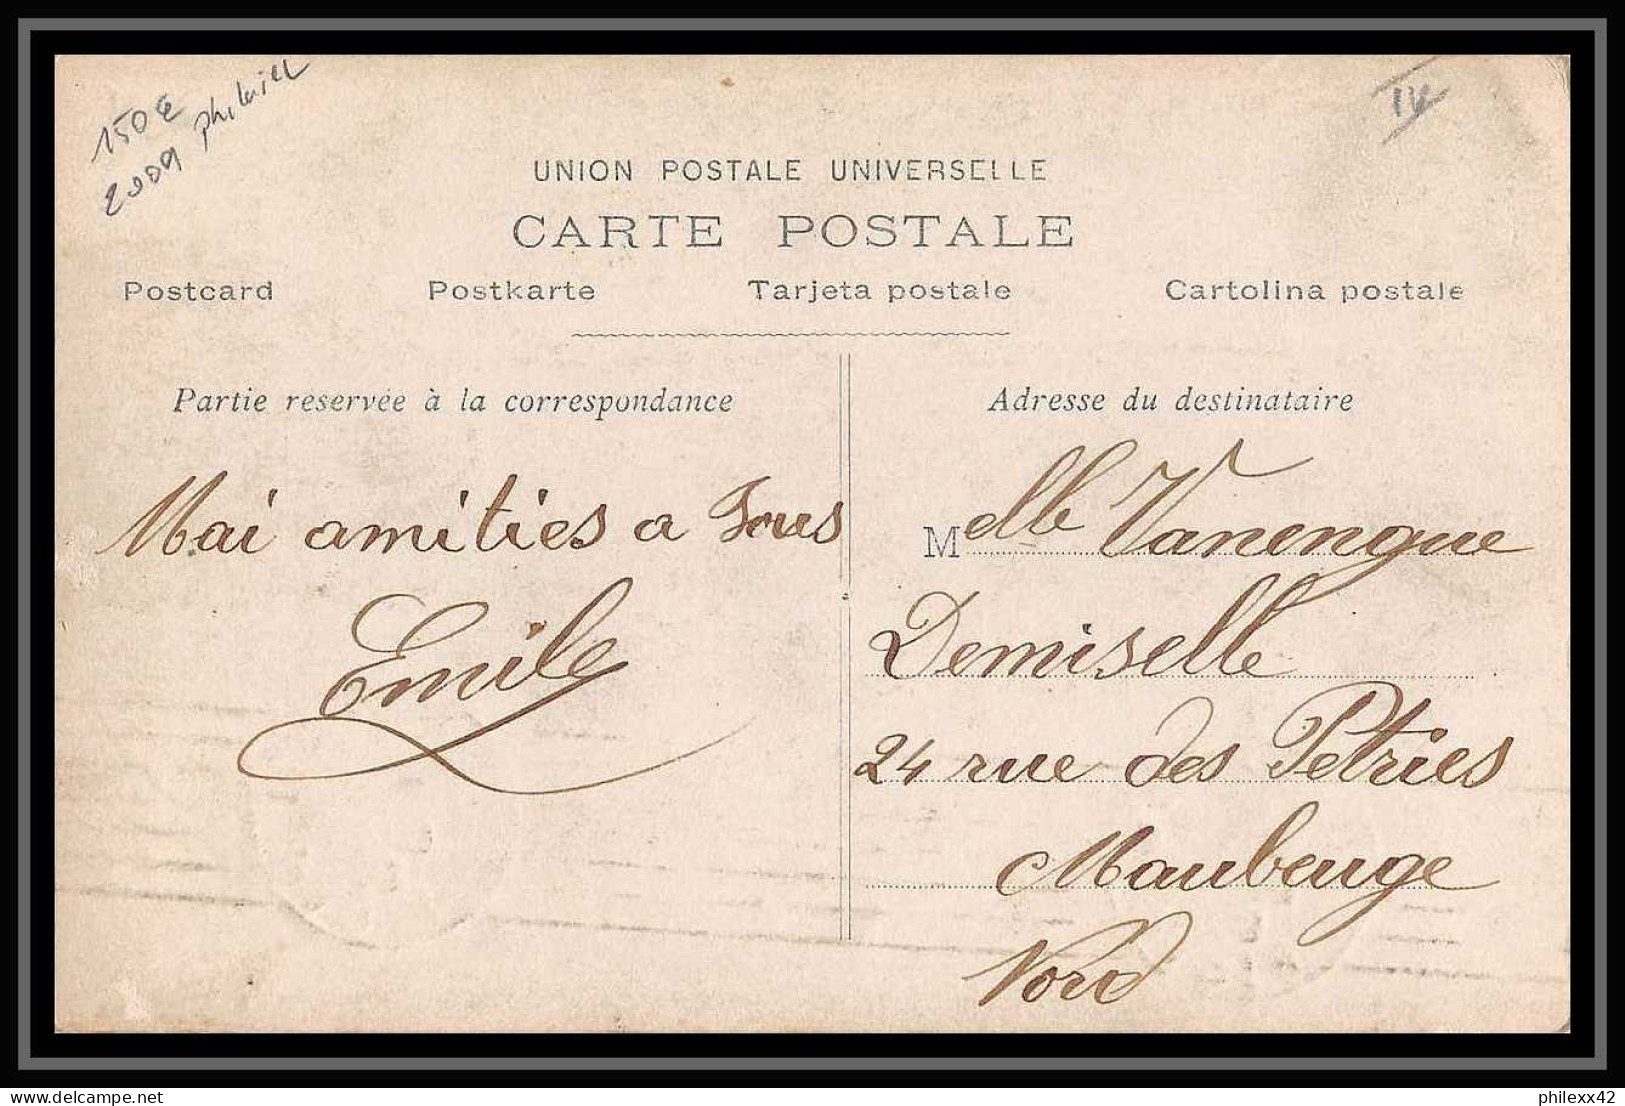 150€
2009
IV
UNION POSTALE UNIVERSELLE
CARTE POSTALE
Postcard Postkarte Tarjeta postale Cartolina postale
Partie reservée à la correspondance
Mai amities a Tous
Emile
Adresse du destinataire
Melle Vanengue
Demiselle
24 rue des Petries
Maubeuge
Nord
delcampe.net
philexx42